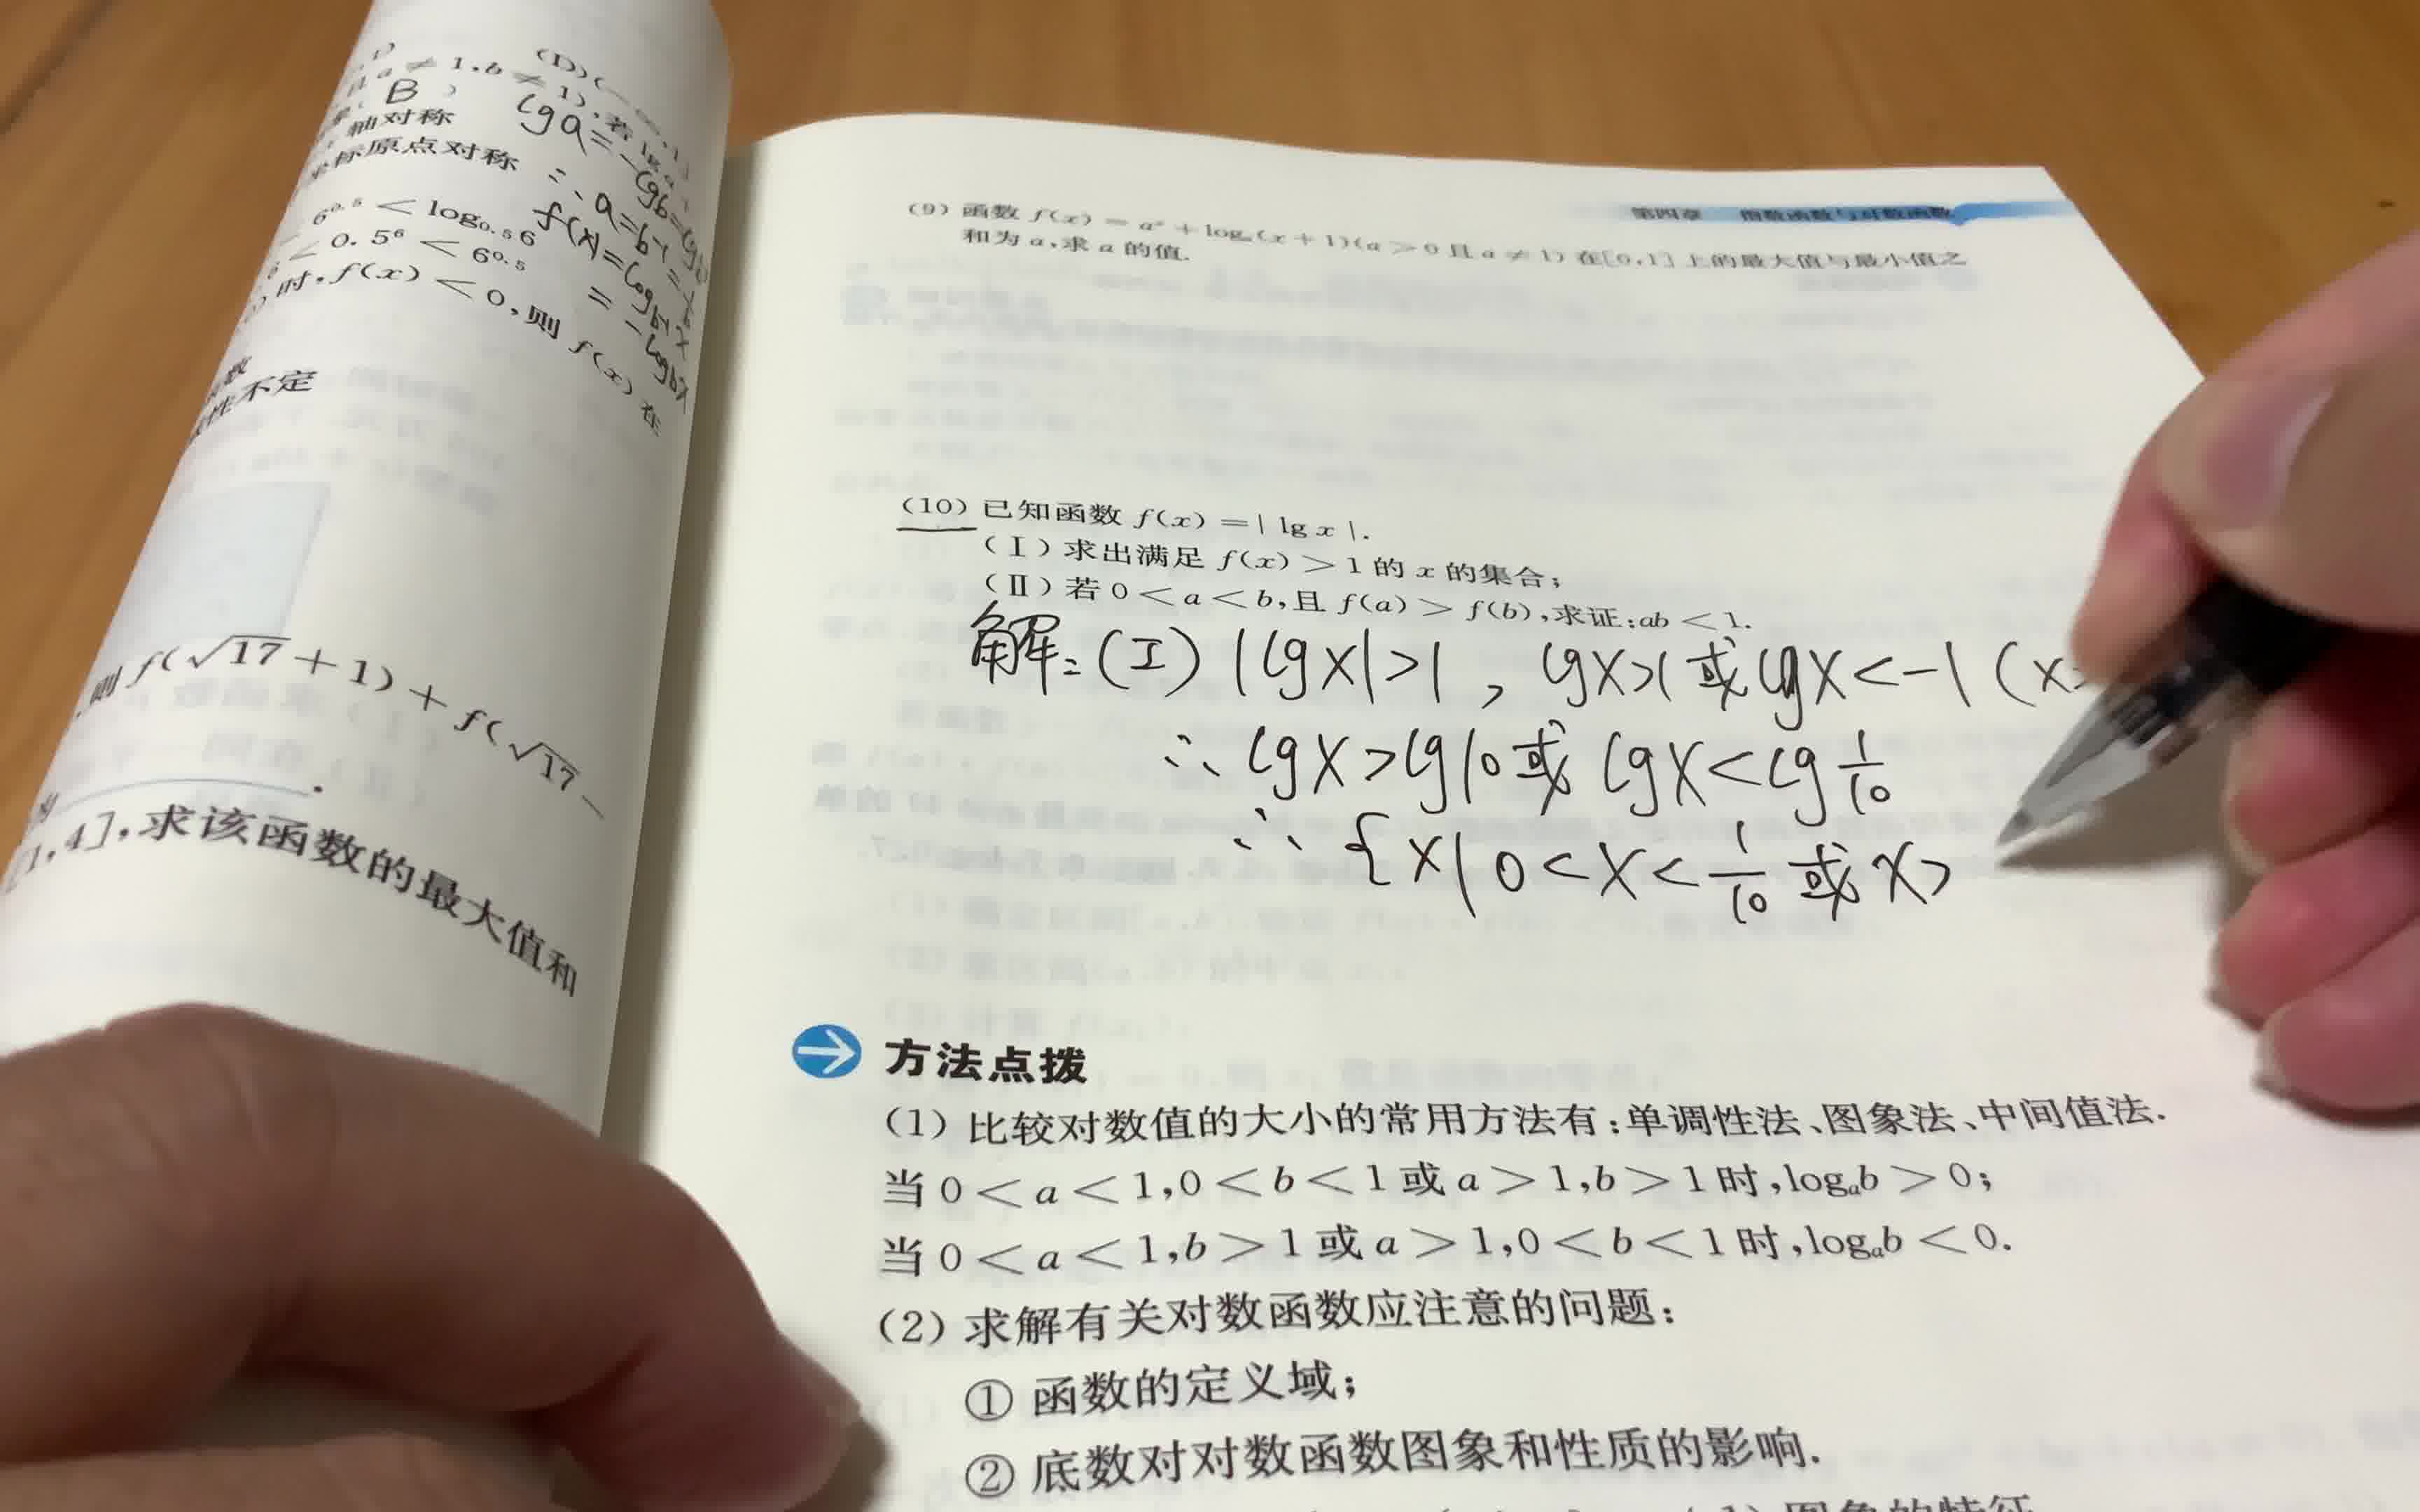 (D)(-∞,1]
a≠1,b≠1),若lg a
B )
lga=-lgb=lgb
轴对称
坐标原点对称
∴a=b⁻¹=
f(x)=logb⁻¹x
=-logbx
6^0.5<log_0.5 6
<0.5⁶<6^0.5
)时,f(x)<0,则f(x)在
性不定
则f(√17+1)+f(√17-
[1,4],求该函数的最大值和
第四章 指数函数与对数函数
(9)函数f(x)=aˣ+logₐ(x+1)(a>0且a≠1)在[0,1]上的最大值与最小值之
和为a,求a的值.
(10)已知函数f(x)=|lg x|.
(Ⅰ)求出满足f(x)>1的x的集合;
(Ⅱ)若0<a<b,且f(a)>f(b),求证:ab<1.
解:(I)|lgx|>1,lgx>1或lgx<-1(x>
∴lgx>lg10或lgx<lg1/10
∴{x|0<x<1/10或x>
方法点拨
(1)比较对数值的大小的常用方法有:单调性法、图象法、中间值法.
当0<a<1,0<b<1或a>1,b>1时,logₐb>0;
当0<a<1,b>1或a>1,0<b<1时,logₐb<0.
(2)求解有关对数函数应注意的问题:
①函数的定义域;
②底数对对数函数图象和性质的影响.
图象的特征